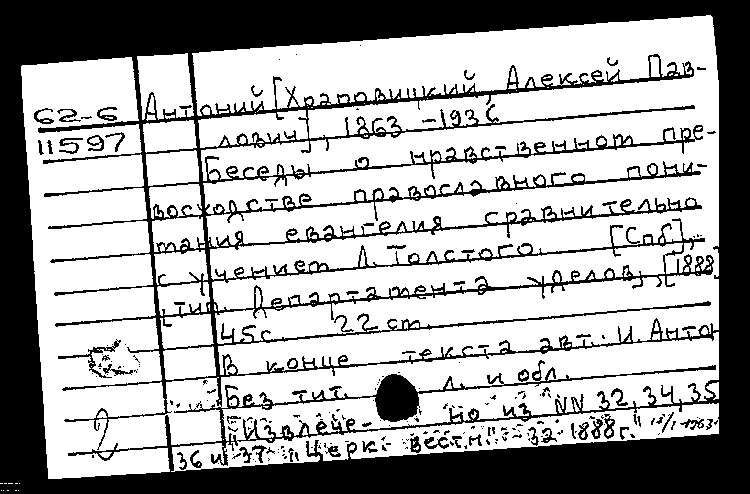 62-6 Антоний [Храповицкий, Алексей Пав-
11597 лович], 1863-1936
Беседы о нравственном пре-
восходстве православного пони-
мания евангелия сравнительно
с учением Л. Толстого. [Спб],
тип. Департамента уделов, [1888]
45с. 22 cm.
В конце текста авт.: И. Анто
Без тит. л. и обл.
"Извлече- но из NN 32, 34, 35
2
36 и 37 "Церк. вестн." за 1888г."